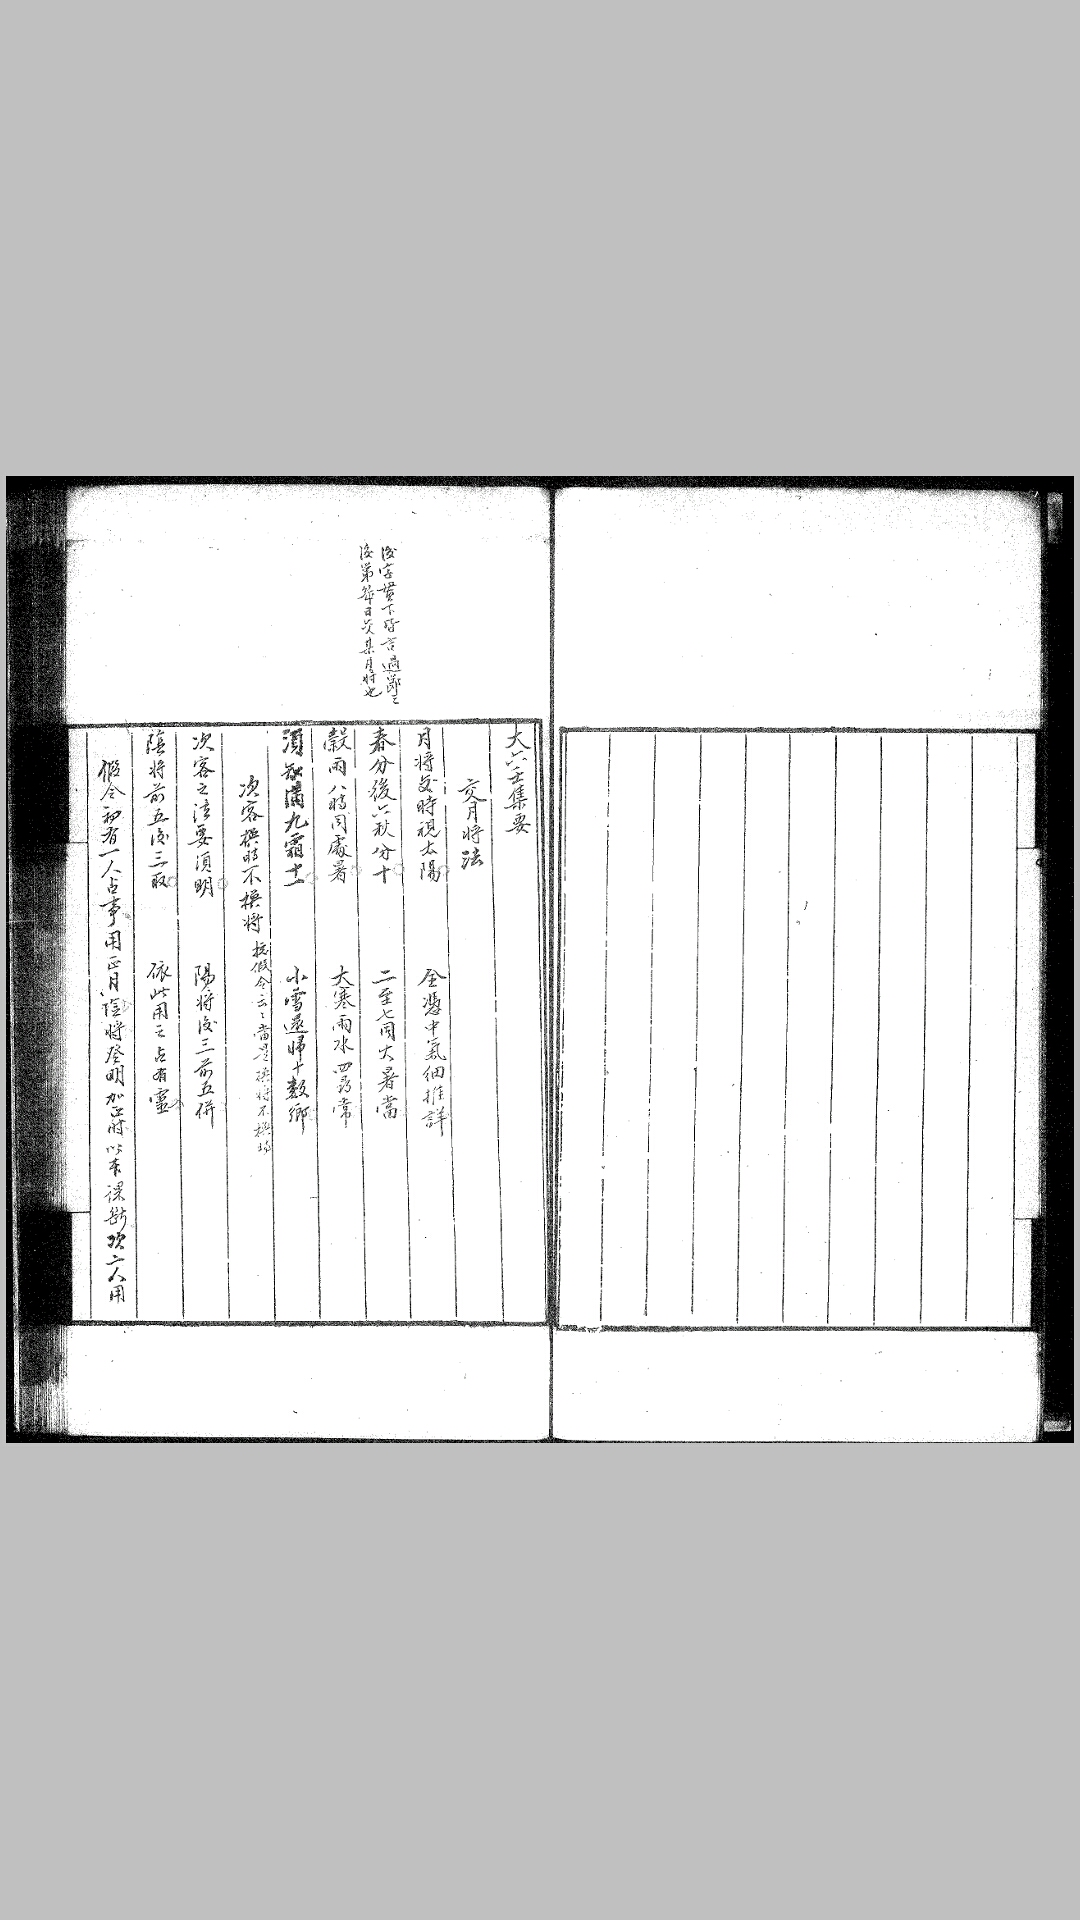 大六壬集要
交月將法
月將交時視太陽　全憑中氣細推詳
春分後六秋分十　二至七周大暑當
穀雨八時同處暑　大寒雨水四尋常
滿九霜十一　小雪還歸十數鄉
次客換時不換將
按假令云云當是換將不換時
次客之法要須明　陽將後三前五併
陰將前五後三取　依此用之占有靈
假令初有一人占事用正月陰將登明加正時以本課斷次二人用
後字
後第幾日交某月將也